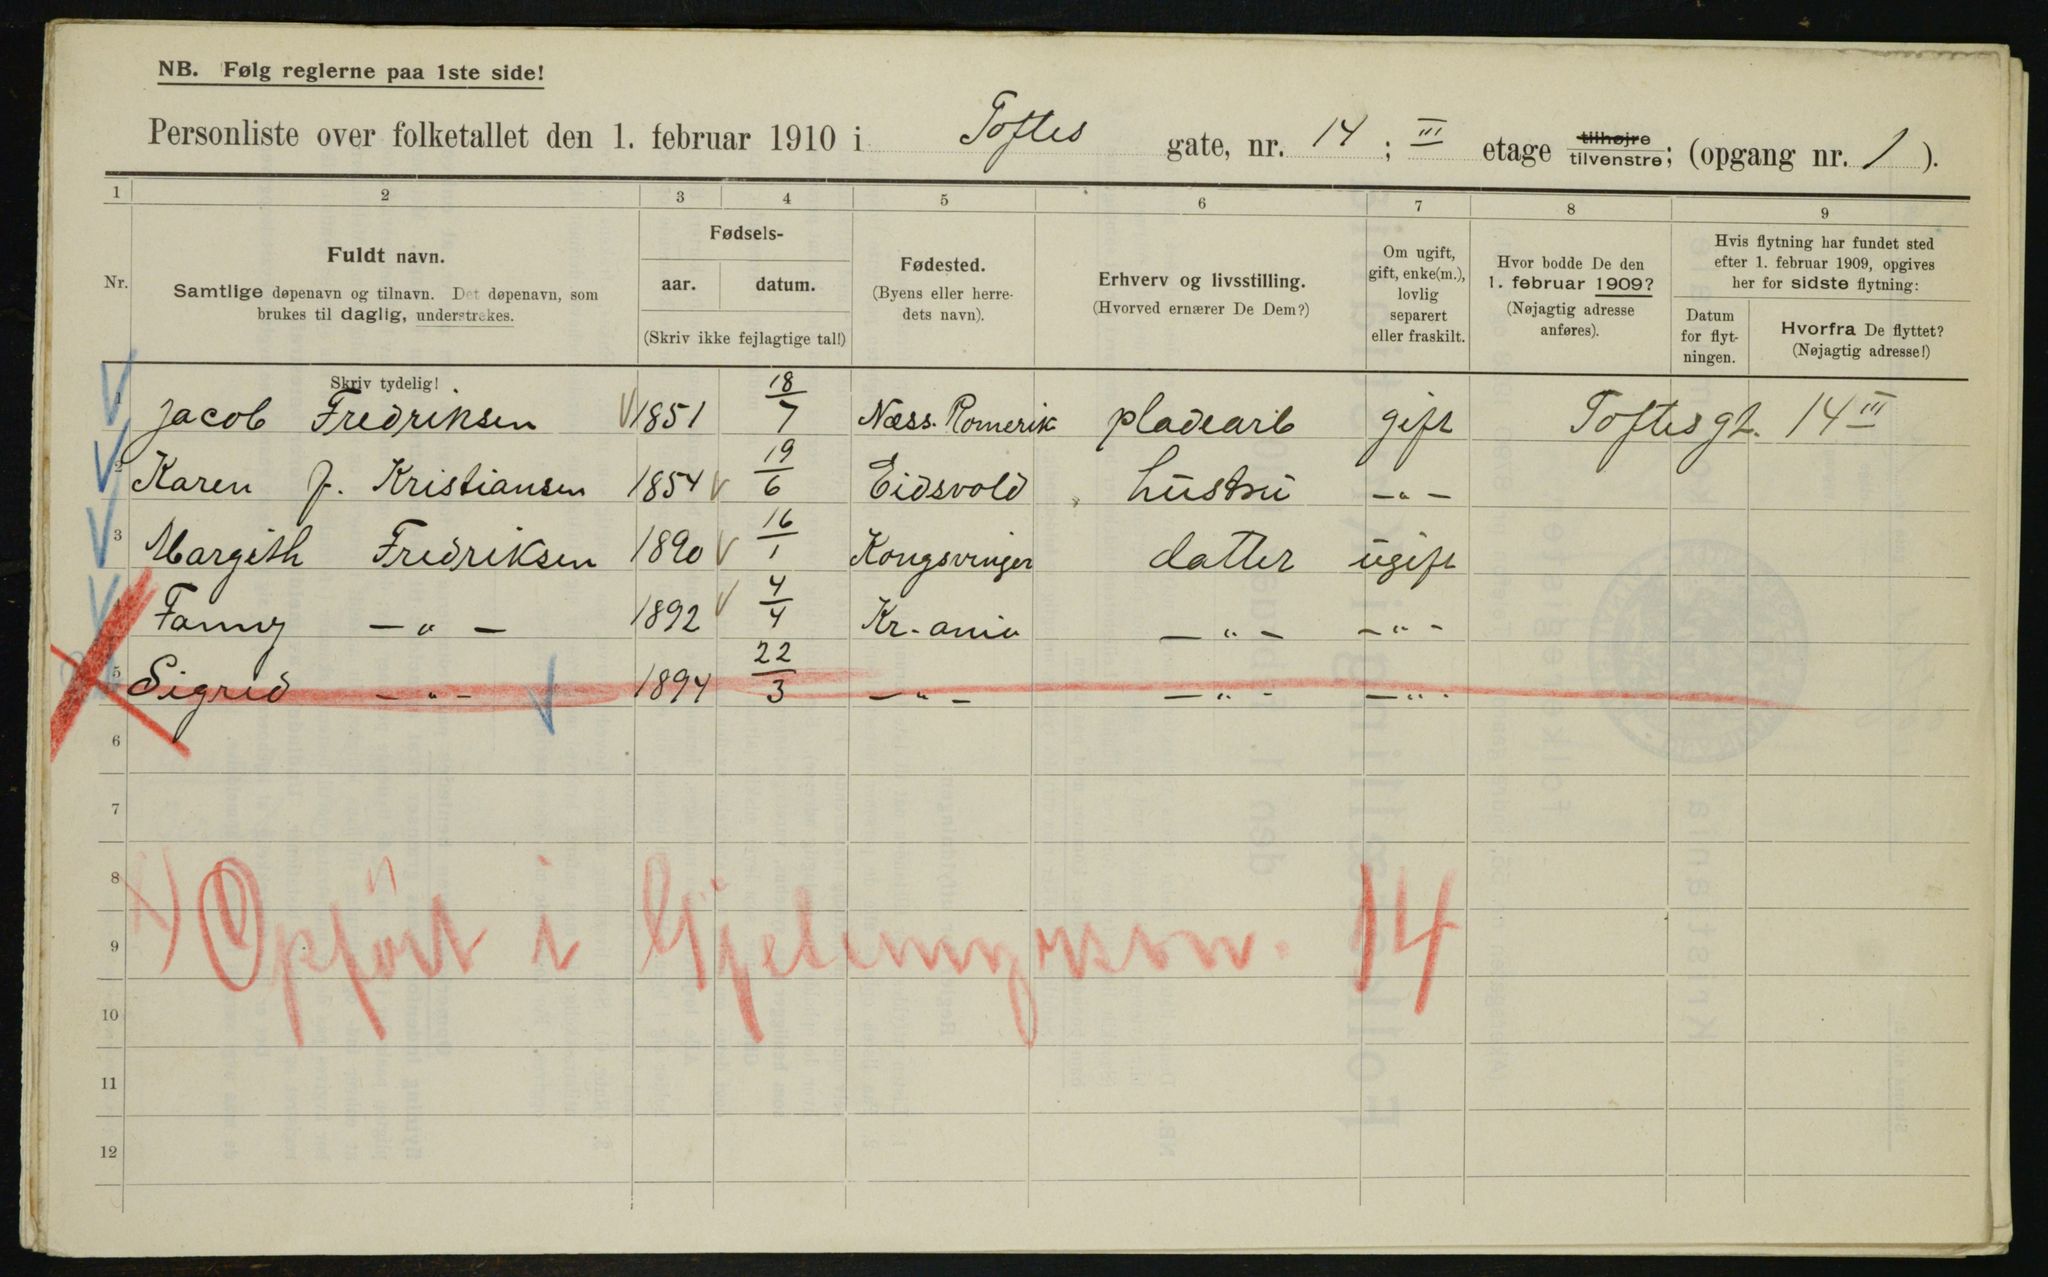 NB. Følg reglerne paa 1ste side!
Personliste over folketallet den 1. februar 1910 i Toftes gate, nr. 14 ; III etage tilhøjre tilvenstre; (opgang nr. 1 ).
1 2 3 4 5 6 7 8 9
Nr.
Fuldt navn.
Samtlige døpenavn og tilnavn. Det døpenavn, som
brukes til daglig, understrekes.
Skriv tydelig!
Fødsels-
aar. datum.
(Skriv ikke fejlagtige tal!)
Fødested.
(Byens eller herre-
dets navn).
Erhverv og livsstilling.
(Hvorved ernærer De Dem?)
Om ugift,
gift, enke(m.),
lovlig
separert
eller fraskilt.
Hvor bodde De den
1. februar 1909?
(Nøjagtig adresse
anføres).
Hvis flytning har fundet sted
efter 1. februar 1909, opgives
her for sidste flytning:
Datum
for flyt-
ningen.
Hvorfra De flyttet?
(Nøjagtig adresse!)
1 Jacob Fredriksen 1851 18/7 Næss. Romerik pladearb gift Toftes gt. 14 III
2 Karen J. Kristiansen 1854 19/6 Eidsvold hustru — " —
3 Margith Fredriksen 1890 16/1 Kongsvinger datter ugift
4 Fanny — " — 1892 4/4 Kr-ania — " — — " —
5 Sigrid — " — 1894 22/3 — " — — " — — " —
6
7
8
9
Opført i 14
10
11
12